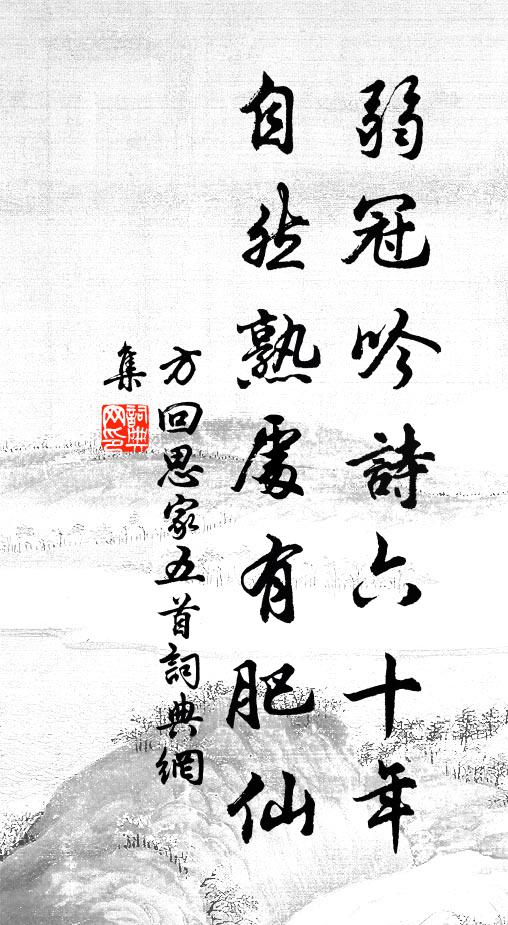 弱冠吟詩六十年
自然熟處有肥仙
方回思家五首詞典網
集
詞典
网印